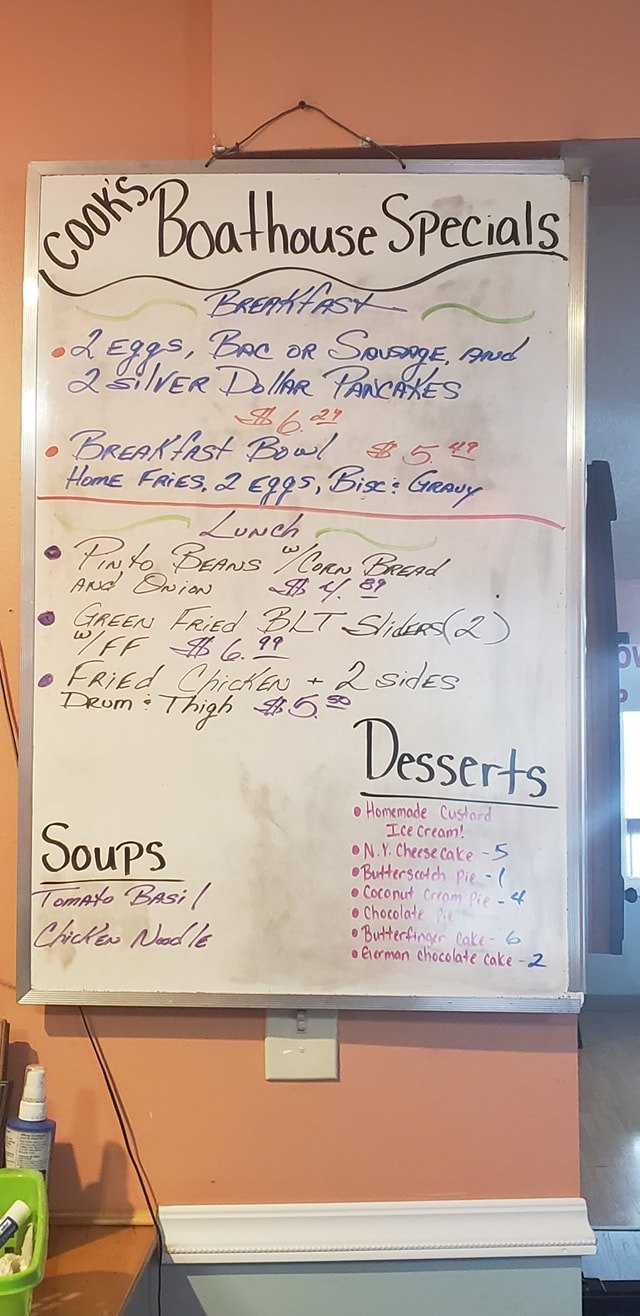 COOK'S Boathouse Specials
BREAKFAST
• 2 EGGS, BAC OR SAUSAGE, AND
2 SILVER DOLLAR PANCAKES
$ 6.29
• BREAKFAST BOWL $ 5.49
HOME FRIES, 2 EGGS, BISC: GRAVY
LUNCH
• PINTO BEANS w/CORN BREAD
AND ONION $ 4.89
• GREEN FRIED BLT SLIDERS (2)
w/FF $ 6.99
• FRIED CHICKEN + 2 SIDES
DRUM : THIGH $ 5.50
Desserts
• Homemade Custard
Ice Cream!
• N.Y. Cheesecake - 5
• Butterscotch Pie - 1
• Coconut Cream Pie - 4
• Chocolate Pie
• Butterfinger Cake - 6
• German chocolate cake - 2
Soups
TOMATO BASIL
CHICKEN NOODLE